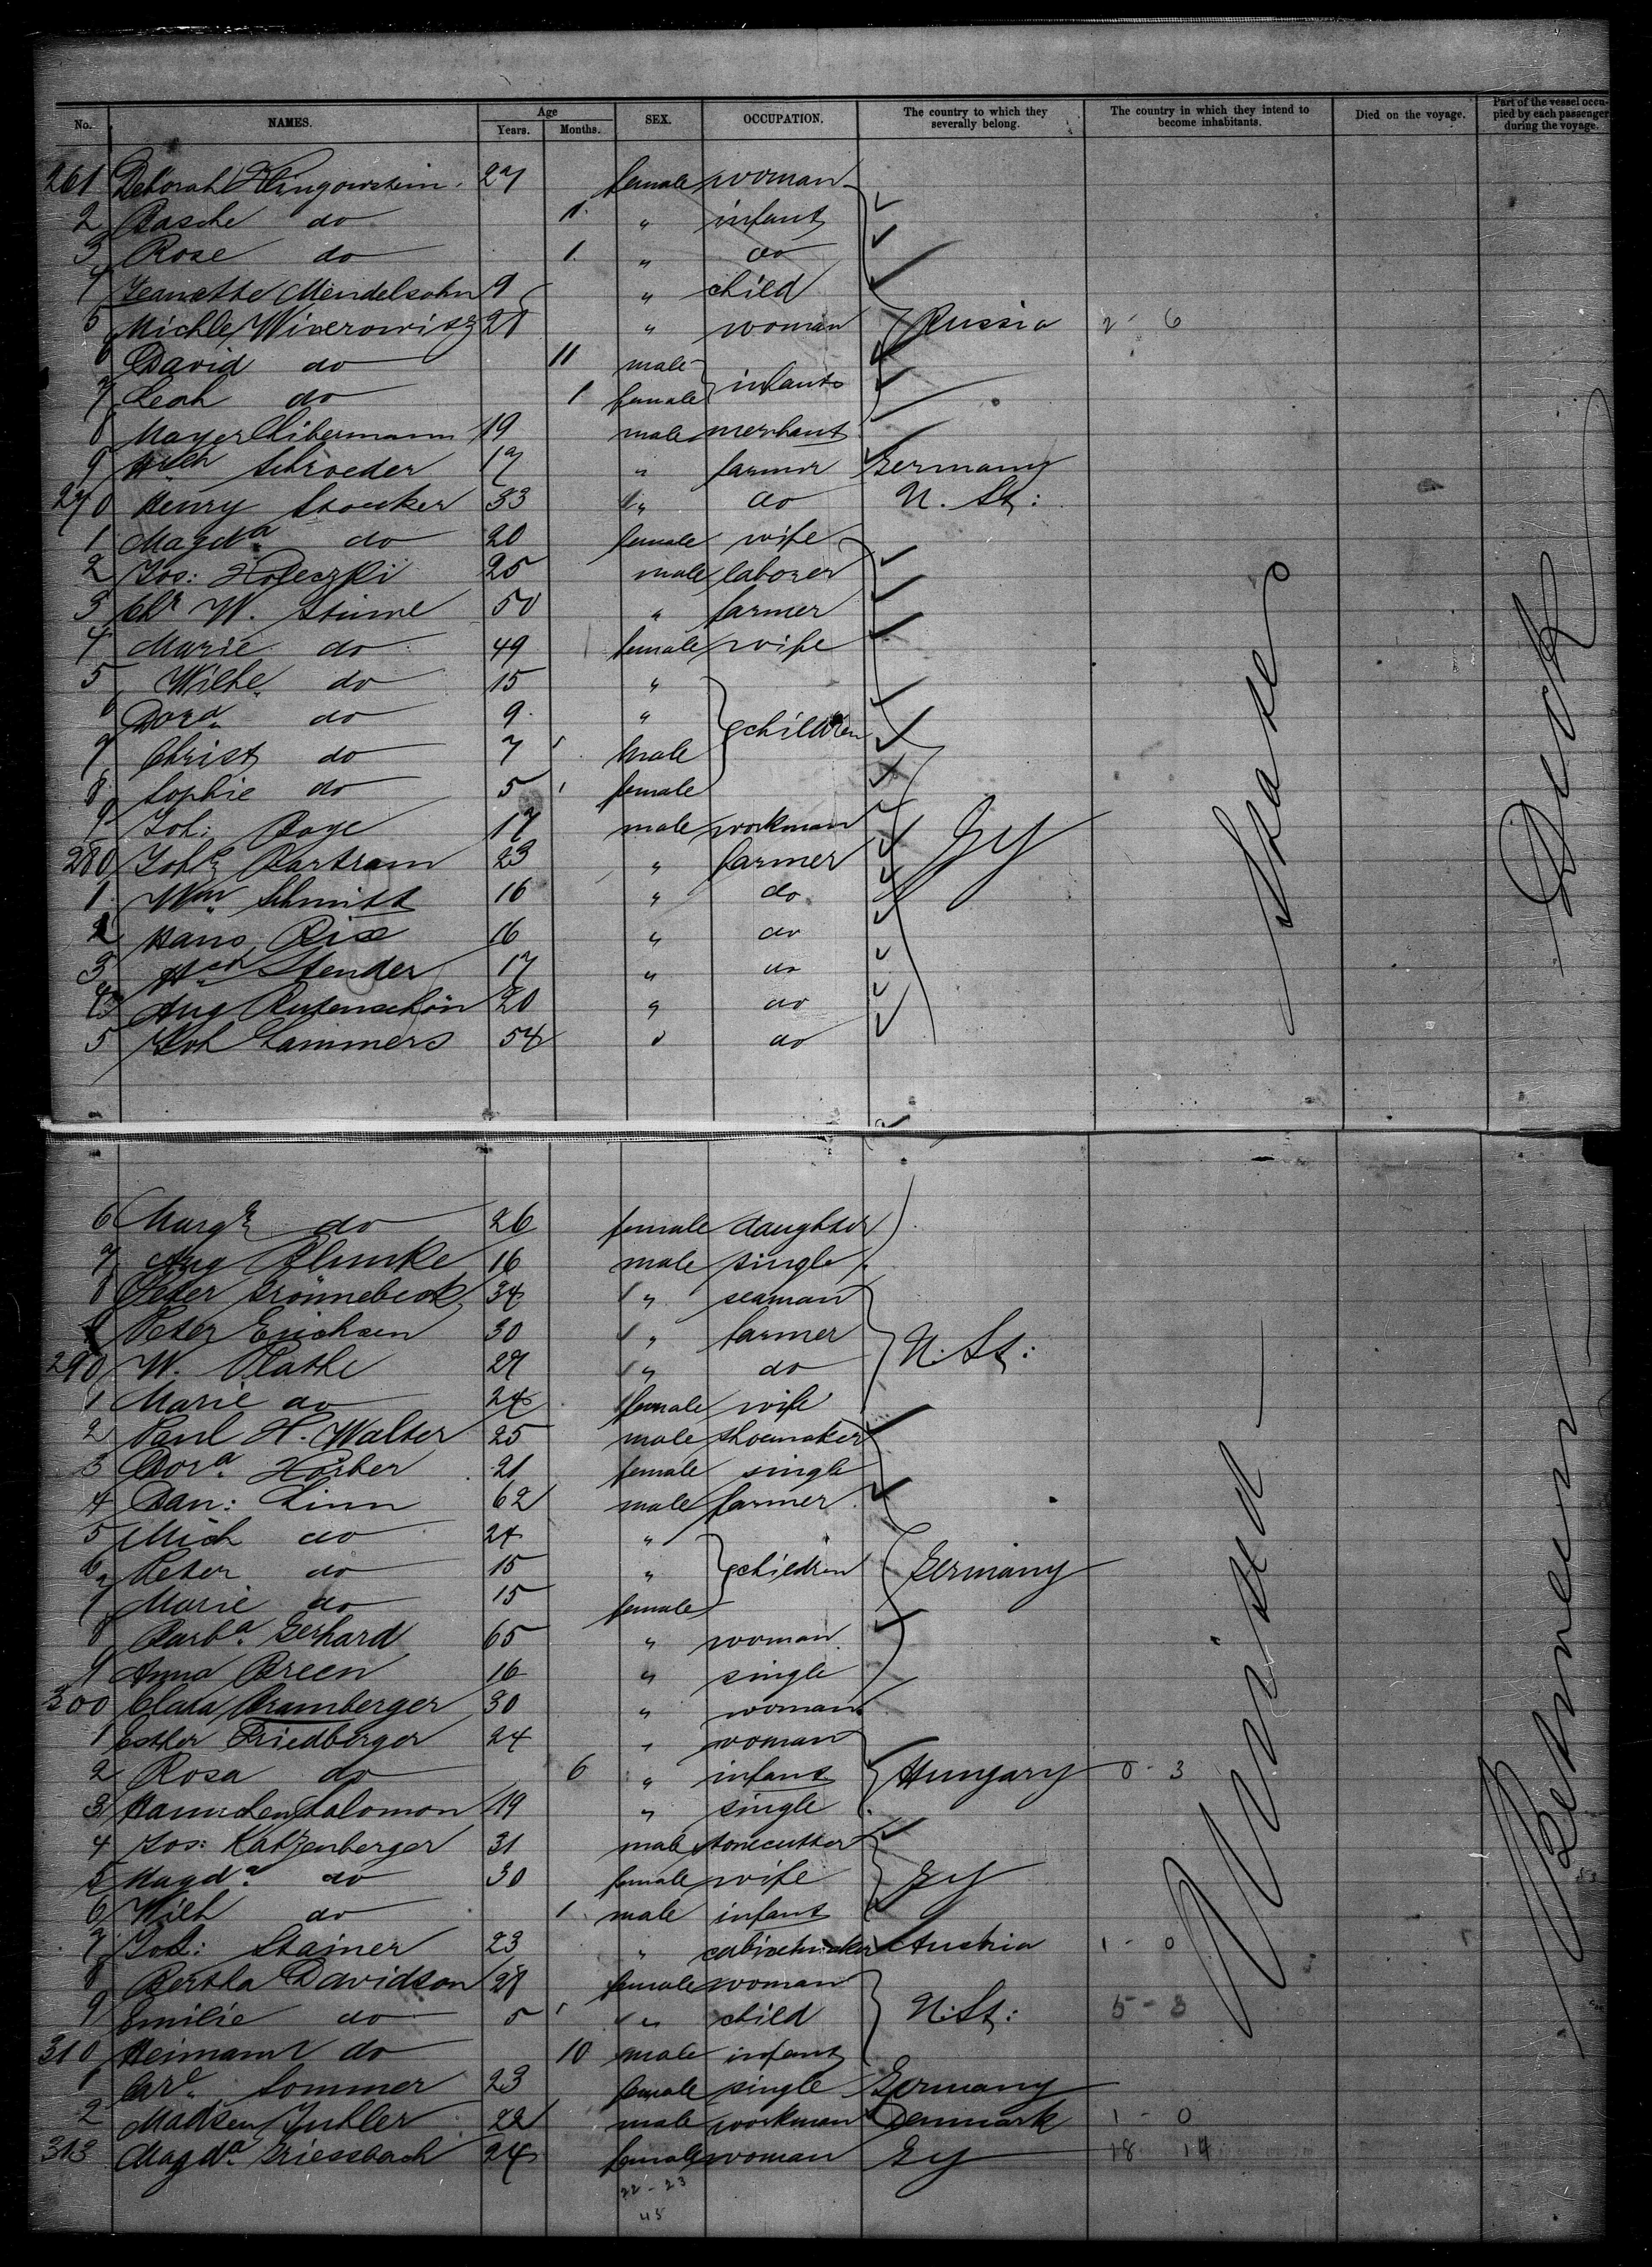 No. NAMES. Age Years. Months. SEX. OCCUPATION. The country to which they severally belong. The country in which they intend to become inhabitants. Died on the voyage. Part of the vessel occupied by each passenger during the voyage.
261 Deborah 27 female woman
2 Rasche do 11 " infant
3 Rose do 1 " do
4 Jeanette Mendelsohn 9 " child
5 Michle Wixerowitz 28 " woman Russia 2 - 6
6 David do 11 male infants
7 Leah do 1 female
8 Mayer Libermann 19 male merchant
9 Hch Schroeder 17 " farmer Germany
270 Henry Stoecker 33 " do U. St:
1 Magda do 20 female wife
2 Jos: 25 male laborer
3 Chr W. Stüwe 50 " farmer
4 Marie do 49 female wife
5 Wilhe do 15 "
6 Dora do 9 " children
7 Christ do 7 male
8 Sophie do 5 female
9 Joh: Boye 17 male workman Gy
280 Johs Bartram 23 " farmer
1 Wm Schmitt 16 " do
2 Hans Rix 16 " do
3 Hch Stender 17 " do
4 Aug Rutenschön 20 " do
5 Joh Lammers 54 " do
6 Margr do 26 female daughter
7 Aug Blunke 16 male single
8 Peter Grönnebeck 34 " seaman
9 Peter Erichsen 30 " farmer U. St:
290 W. Plathe 27 " do
1 Marie do 24 female wife
2 Paul H. Walter 25 male shoemaker
3 Dora Hörber 21 female single
4 Dan: Linn 62 male farmer
5 Mich do 24 "
6 Peter do 15 " children Germany
7 Marie do 15 female
8 Barba Gerhard 65 " woman
9 Anna Breen 16 " single
300 Clara Bramberger 30 " woman
1 Esther Friedberger 24 " woman
2 Rosa do 6 " infant Hungary 0 - 3
3 Hannchen Salomon 19 " single
4 Jos: Katzenberger 31 male stonecutter
5 Magda do 30 female wife Gy
6 Wilh do 1 male infant
7 Joh: Stainer 23 " cabinetmaker Austria 1 - 0
8 Bertha Davidson 28 female woman
9 Emilie do 5 " child U. St: 5 - 3
310 Heimann do 10 male infant
1 Care Sommer 23 female single Germany
2 Madsen Juhler 22 male workman Denmark 1 - 0
313 Magda Griessbach 24 female woman Gy 18 14
22 - 23
45
United States
Between Deck